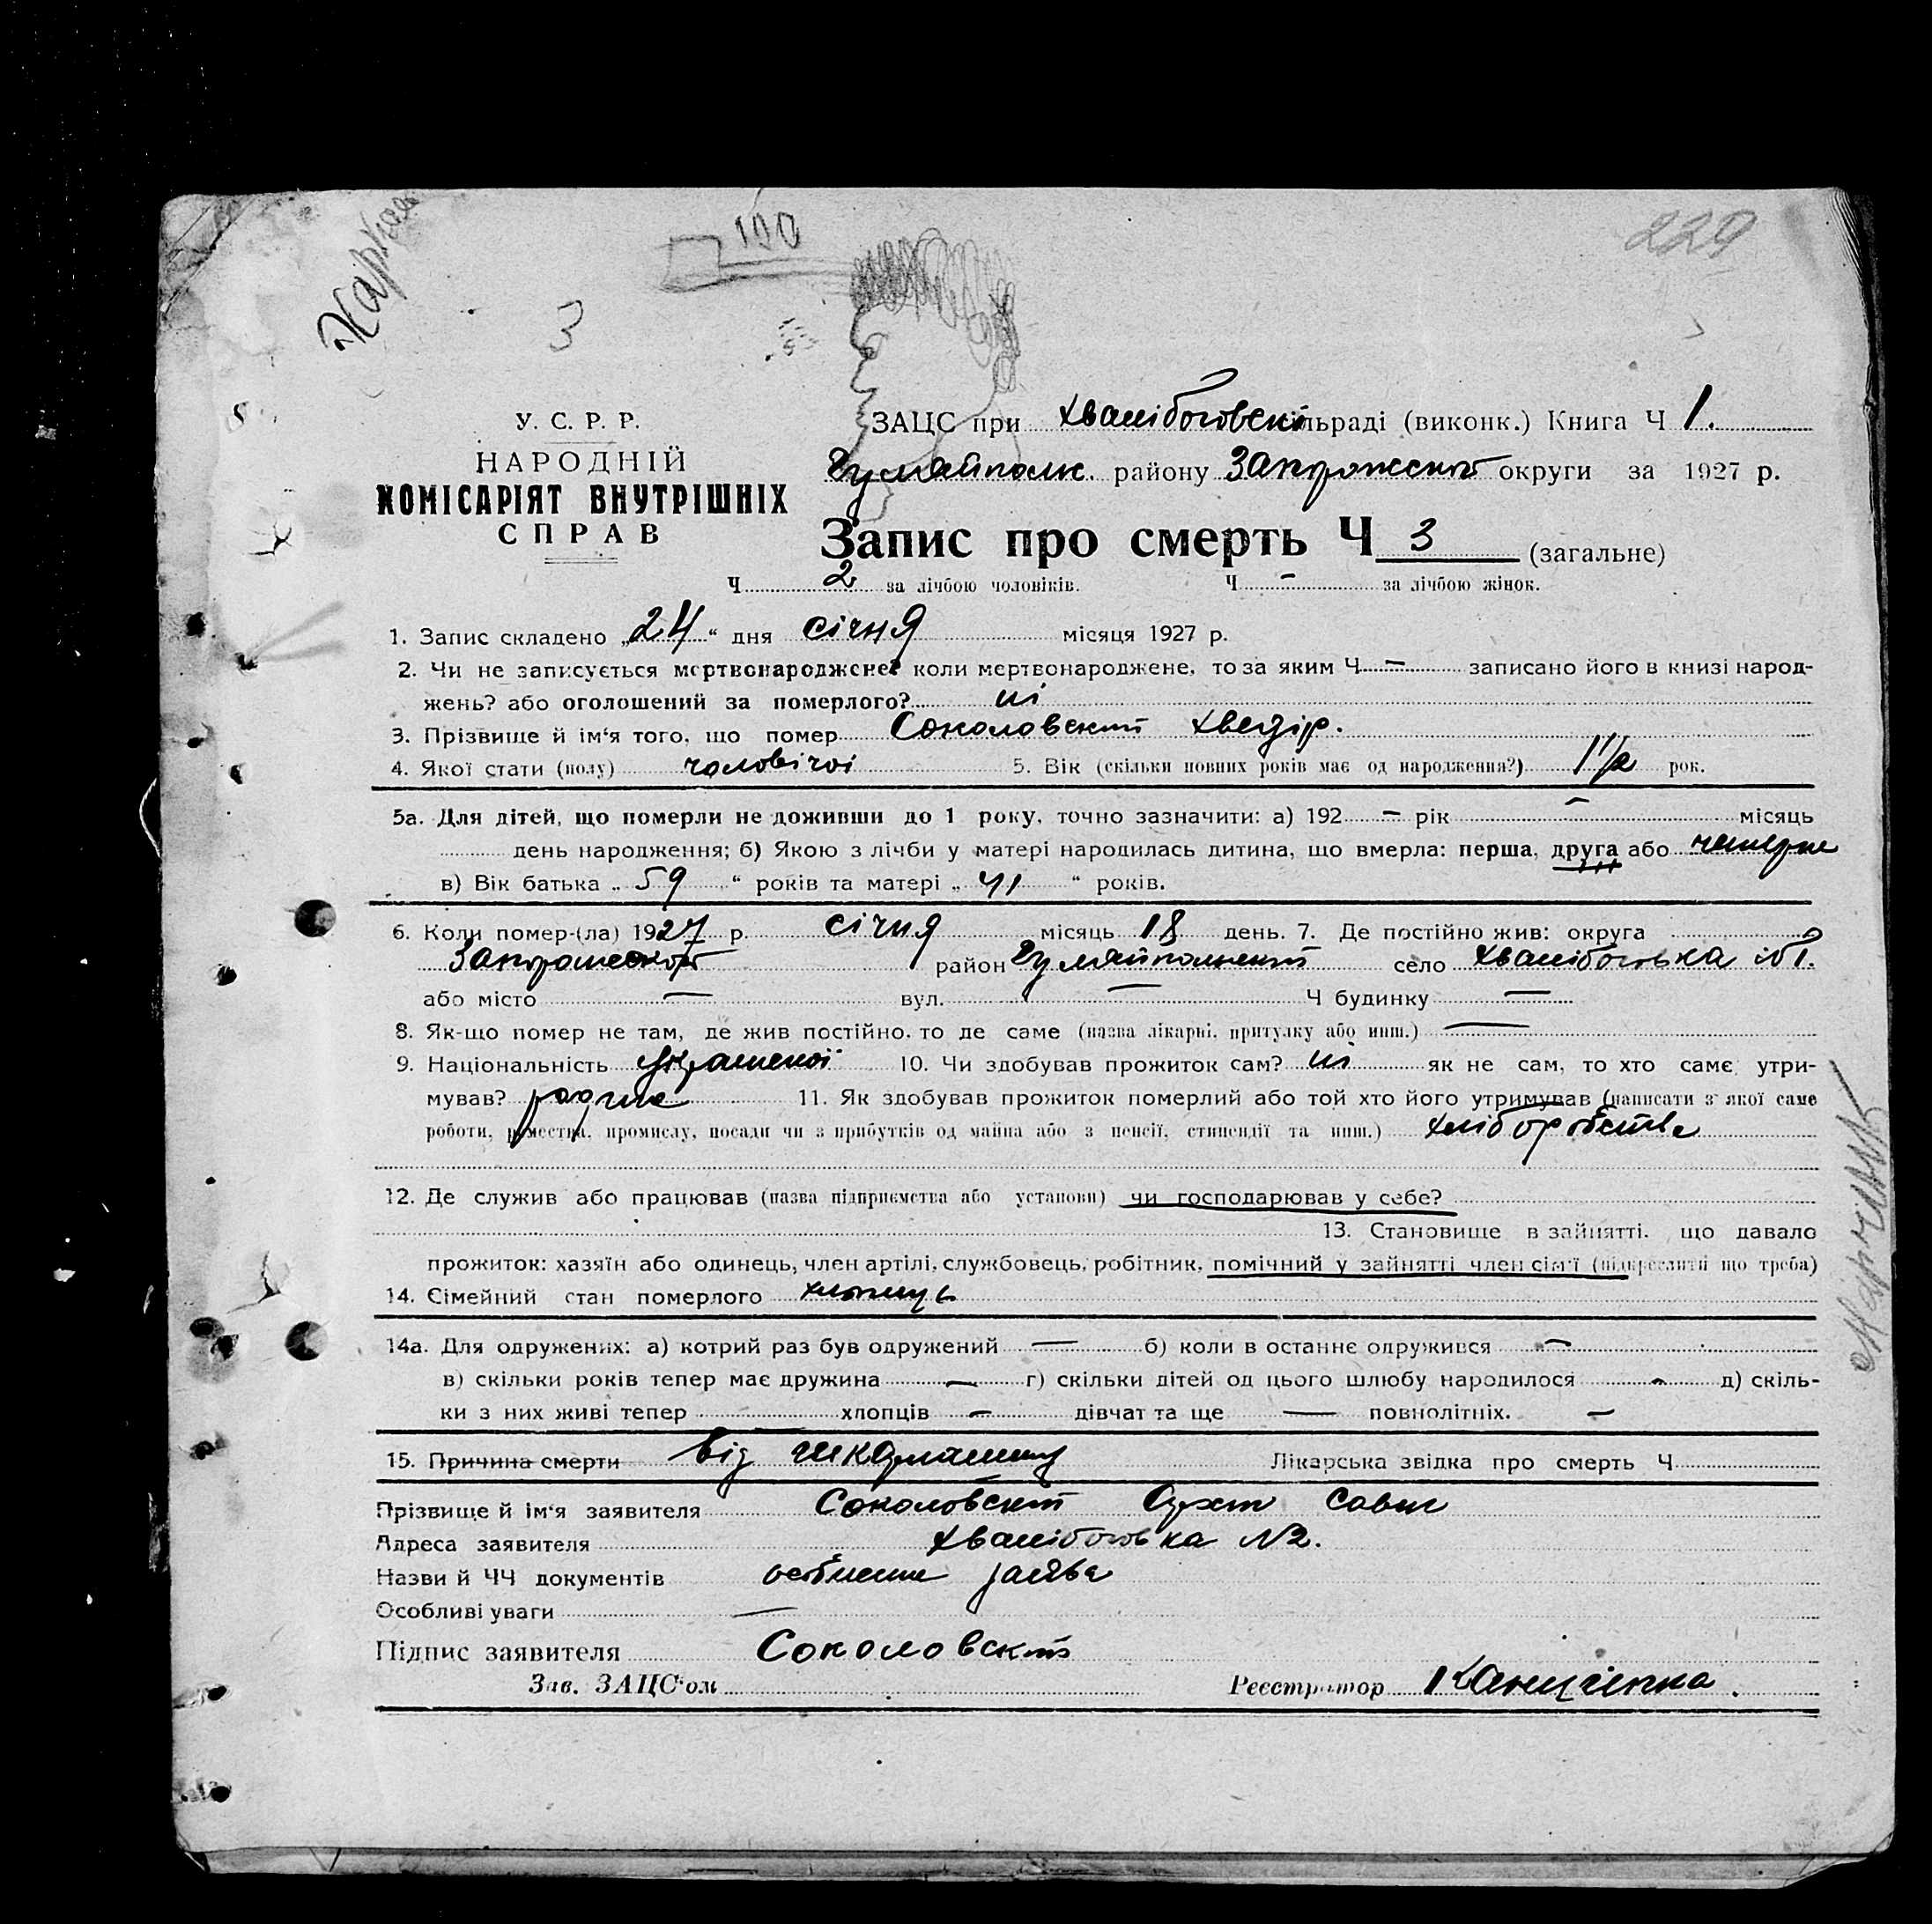 229
100
3
У. С. Р. Р.
НАРОДНІЙ
КОМІСАРІЯТ ВНУТРІШНІХ
СПРАВ
ЗАЦС при Хвалібоговскі льраді (виконк.) Книга Ч 1.
Гуляйполк. району Запорожської округи за 1927 р.
Запис про смерть Ч 3 (загальне)
Ч 2 за лічбою чоловіків. Ч - за лічбою жінок.
1. Запис складено „24“ дня січня місяця 1927 р.
2. Чи не записується мертвонароджене? коли мертвонароджене, то за яким Ч — записано його в книзі народ-
жень? або оголошений за померлого? ні
3. Прізвище й ім‘я того, що помер Соколовский Хведір.
4. Якої стати (полу) чоловічої 5. Вік (скільки повних років має од народження?) 1 1/2 рок.
5а. Для дітей, що померли не доживши до 1 року, точно зазначити: а) 192 — рік — місяць
день народження; б) Якою з лічби у матері народилась дитина, що вмерла: перша, друга або
в) Вік батька „ 59 “ років та матері „ 41 “ років.
6. Коли помер-(ла) 1927 р. січня місяць 18 день. 7. Де постійно жив: округа
Запорожської район Гуляйпольский село Хвалібоговка №1.
або місто — вул. — Ч будинку —
8. Як-що помер не там, де жив постійно, то де саме (назва лікарні, притулку або инш.) —
9. Національність української 10. Чи здобував прожиток сам? ні як не сам, то хто саме утри-
мував? родина 11. Як здобував прожиток померлий або той хто його утримував (написати з якої саме
роботи, ремества, промислу, посади чи з прибутків од майна або з пенсії, стипендії та инш.) хліборобства
12. Де служив або працював (назва підприємства або установи) чи господарював у себе?
13. Становище в зайнятті, що давало
прожиток: хазяїн або одинець, член артілі, службовець, робітник, помічний у зайнятті член сім‘ї (підкреслити що треба)
14. Сімейний стан померлого хлопець
14а. Для одружених: а) котрий раз був одружений — б) коли в останнє одружився —
в) скільки років тепер має дружина — г) скільки дітей од цього шлюбу народилося - д) скіль-
ки з них живі тепер хлопців — дівчат та ще — повнолітніх. —
15. Причина смерти від шкарлатини Лікарська звідка про смерть Ч
Прізвище й ім‘я заявителя Соколовский Сави
Адреса заявителя Хвалібоговка №2.
Назви й ЧЧ документів заява
Особливі уваги —
Підпис заявителя Соколовский
Зав. ЗАЦС‘ом Реєстратор